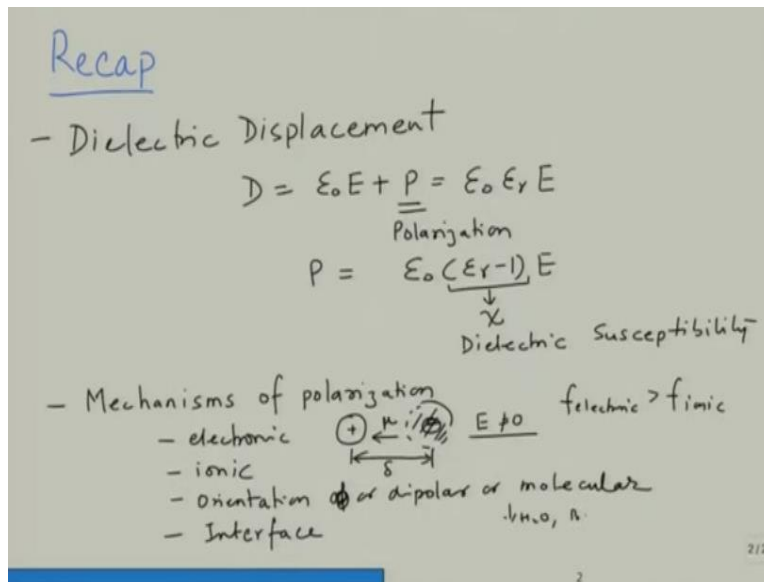 Recap
- Dielectric Displacement
D = ε₀E + P = ε₀ εᵣ E
Polarization
P = ε₀(εᵣ-1) E
χ
Dielectric Susceptibility
- Mechanisms of polarization
- electronic + μ E≠0 felectronic > fionic
δ
- ionic
- Orientation or dipolar or molecular
H₂O,
- Interface
2/2
2